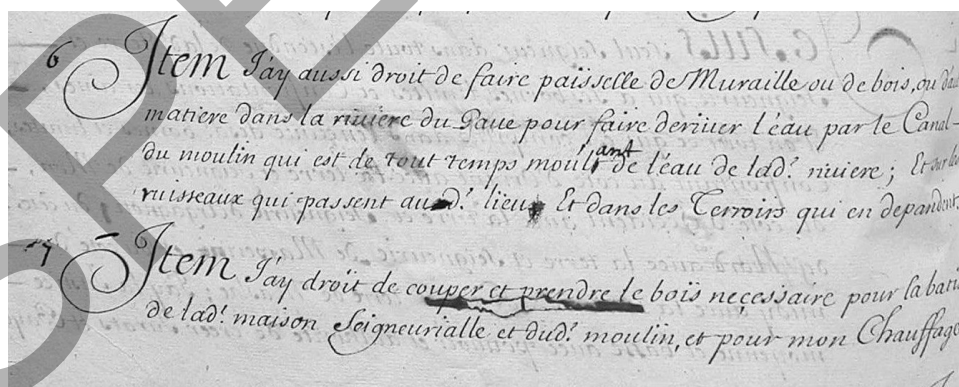 6 Item J'ay aussi droit de faire païsselle de Muraille ou de bois, ou d'au
matiere dans la riviere du Gave pour faire deriver l'eau par le Canal-
du moulin qui est de tout temps moulant de l'eau de lad.^ riviere; Et sur les
ruisseaux qui passent aud.^ lieu Et dans les Terroirs qui en dependent
7 Item J'ay droit de couper et prendre le bois necessaire pour la bati
de lad.^ maison Seigneurialle et dud.^ moulin, et pour mon Chauffage